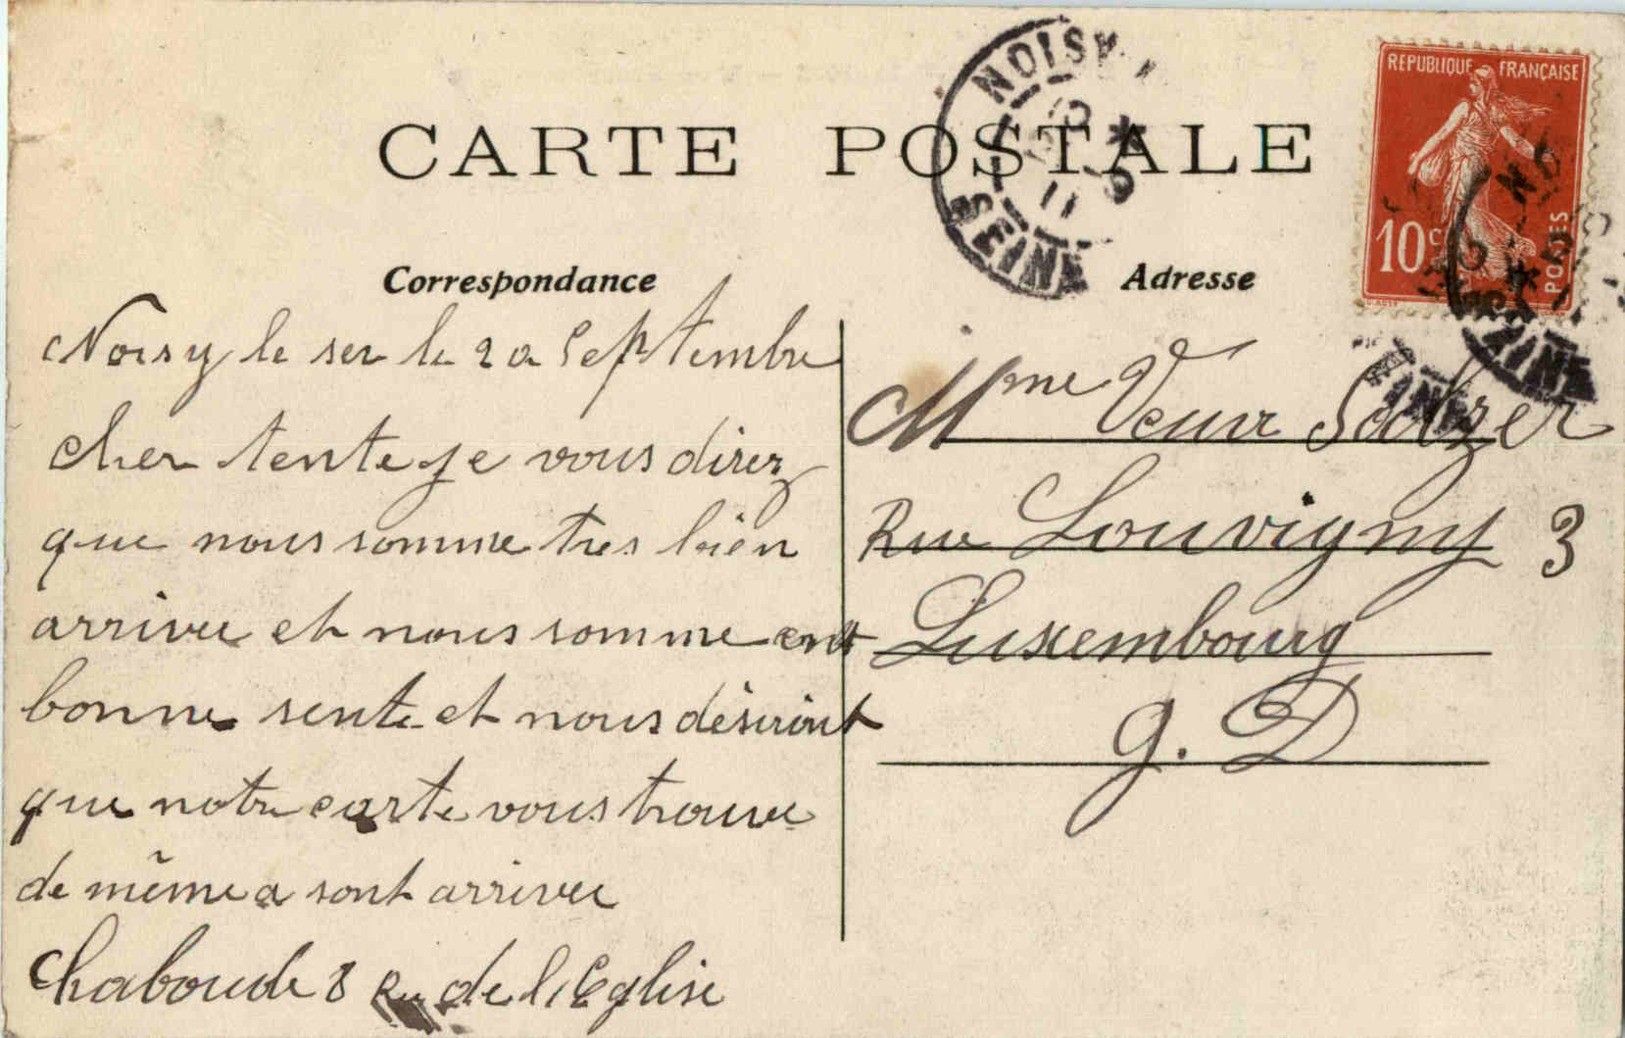 CARTE POSTALE
NOISY
SEINE
11
REPUBLIQUE FRANÇAISE
10c
POSTES
Correspondance
Noisy le ser le 20 Septembre
Cher tente je vous direz
que nous somme tres bien
arrivee et nous somme ent
bonne sente et nous désiront
que notre carte vous trouve
de même a sont arrivee
Chaboude 8 Ru de l'Eglise
Adresse
Mme Veuve Salzer
Rue Louvigny 3
Luxembourg
G. D